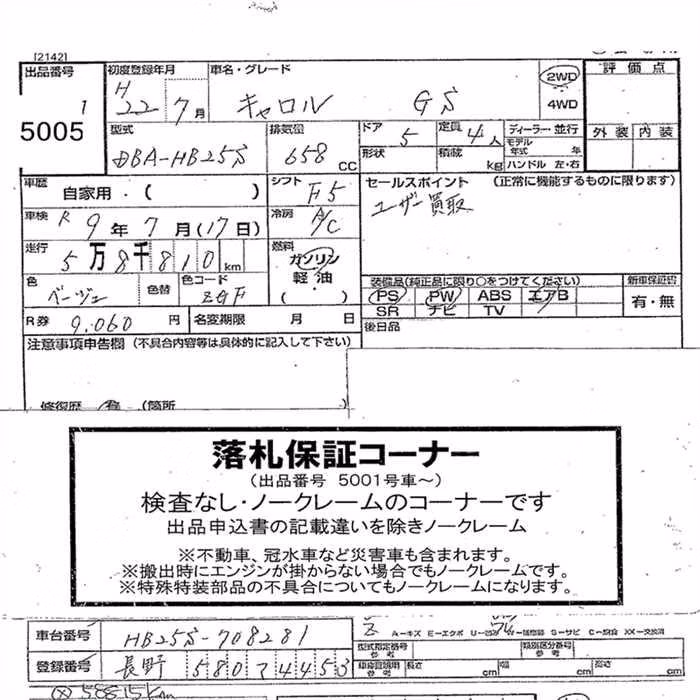 [2142]
出品番号 初度登録年月 車名・グレード 2WD 評価点
1 H 22 7月 キャロル GS 4WD
5005 外装 内装
型式 排気量 ドア 5 定員 4人 ディーラー・並行
DBA-HB25S 658 CC 形状 積載 kg モデル年式 年
ハンドル 左・右
車歴 自家用・( ) シフト F5 セールスポイント (正常に機能するものに限ります)
車検 R 9年 7月(17日) 冷房 A/C ユーザー買取
走行 5万8千810km 燃料 ガソリン
軽油
( )
色 ベージュ 色替 色コード ZGF
装備品(純正品に限り○をつけてください) 新車保証書
PS PW ABS エアB 有・無
SR ナビ TV
R券 9,060円 名変期限 月 日 後日品
注意事項申告欄(不具合内容等は具体的に記入して下さい)
修復歴 有 (箇所
落札保証コーナー
(出品番号 5001号車~)
検査なし・ノークレームのコーナーです
出品申込書の記載違いを除きノークレーム
※不動車、冠水車など災害車も含まれます。
※搬出時にエンジンが掛からない場合でもノークレームです。
※特殊特装部品の不具合についてもノークレームになります。
車台番号 HB25S-708281
登録番号 長野 580 7 4453
A-キズ E-エクボ U-凹み W-補修跡 S-サビ C-腐食 XX-交換済
型式指定番号 参考 類別区分番号 参考
車庫証明用 参考 長さ cm 幅 cm 高さ cm
58815km